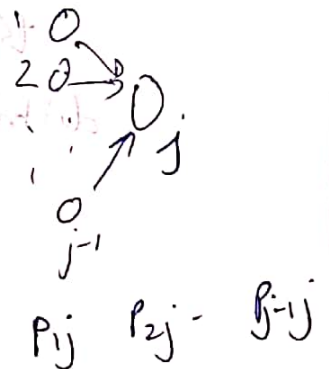 1
2
j
j-1
P1j P2j - Pj-1j